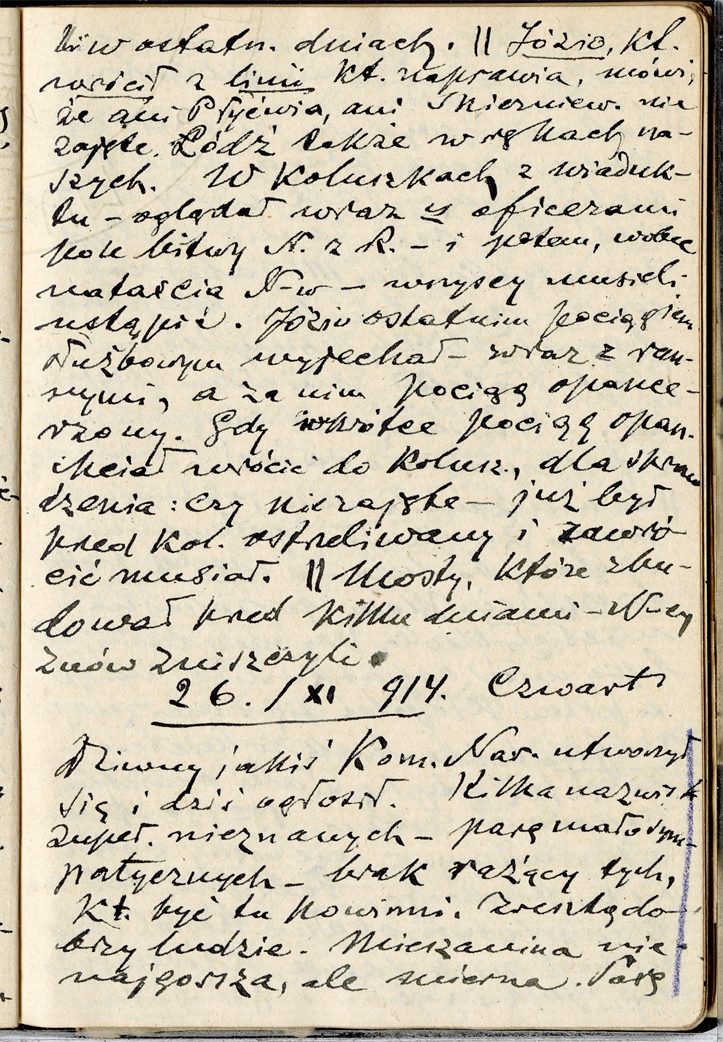 w ostatn. dniach. || Józio, kt.
wrócił z linii kt. naprawia, mówi,
że ani Płyćwia, ani Skierniew. nie
zajęte. Łódź także w rękach na-
szych. W Koluszkach z wiaduk-
tu – oglądał wraz z oficerami
pole bitwy N. z R. – i potem, wobec
natarcia N-w – wszyscy musieli
ustąpić. Józio ostatnim pociągiem
służbowym wyjechał – wraz z ran-
nymi, a za nim pociąg opance-
rzony. Gdy wkrótce pociąg opan.
chciał wrócić do Kolusz., dla spraw
dzenia: czy niezajęte – już był
przed Kol. ostrzeliwany i zawró-
cić musiał. || Mosty, które zbu-
dował przed kilku dniami – N-cy
znów zniszczyli.
26./XI 914. Czwart.
Dziwny jakiś Kom. Nar. utworzył
się i dziś ogłosił. Kilka nazwisk
zupeł. nieznanych – parę mało sym-
patycznych – brak rażący tych,
kt. być tu powinni. Zresztą do-
brzy ludzie. Mieszanina nie-
najgorsza, ale mierna. Parę